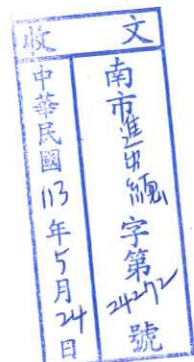 收文
南市進出總字第24272號
中華民國113年5月24日